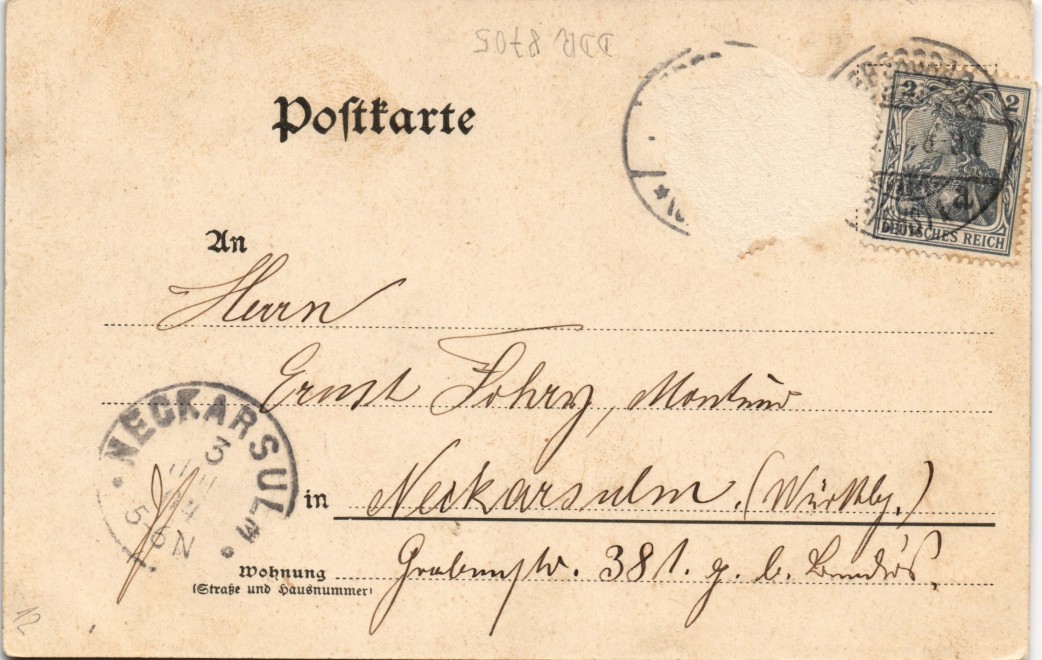 DDR 8702
Postkarte
2 2
DEUTSCHES REICH
An
Herrn
Ernst Fohry, Monteur
NECKARSULM
3
4
5-6N
in Neckarsulm. (Württbg.)
Wohnung Grabenstr. 38 1. g. b.
(Straße und Hausnummer)
12